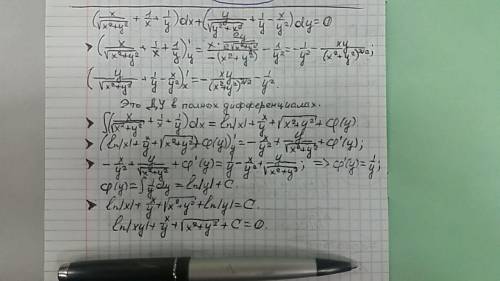 (x/√(x²+y²) + 1/x + 1/y)dx + (y/√(y²+x²) + 1/y - x/y²)dy = 0
➤ (x/√(x²+y²) + 1/x + 1/y)'y = (x · 2y/(2√(x²+y²)))/(-(x²+y²)) - 1/y² = -1/y² - xy/(x²+y²)^(3/2);
(y/√(x²+y²) + 1/y - x/y²)'x = -xy/(x²+y²)^(3/2) - 1/y².
Это ДУ в полных дифференциалах.
➤ ∫(x/√(x²+y²) + 1/x + 1/y)dx = ln|x| + x/y + √(x²+y²) + φ(y)
➤ (ln|x| + x/y + √(x²+y²) + φ(y))'y = -x/y² + y/√(x²+y²) + φ'(y);
➤ -x/y² + y/√(x²+y²) + φ'(y) = 1/y - x/y² + y/√(x²+y²); => φ'(y) = 1/y;
φ(y) = ∫1/y dy = ln|y| + C.
➤ ln|x| + x/y + √(x²+y²) + ln|y| = C.
ln|xy| + x/y + √(x²+y²) + C = 0.